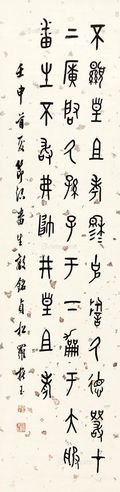 不顯皇且考穆克誓氒德嚴才
上廣啟氒孫子于下龠于大服
番生不敢弗帥井皇且考
壬申首夏節臨番生敦銘貞松羅振玉